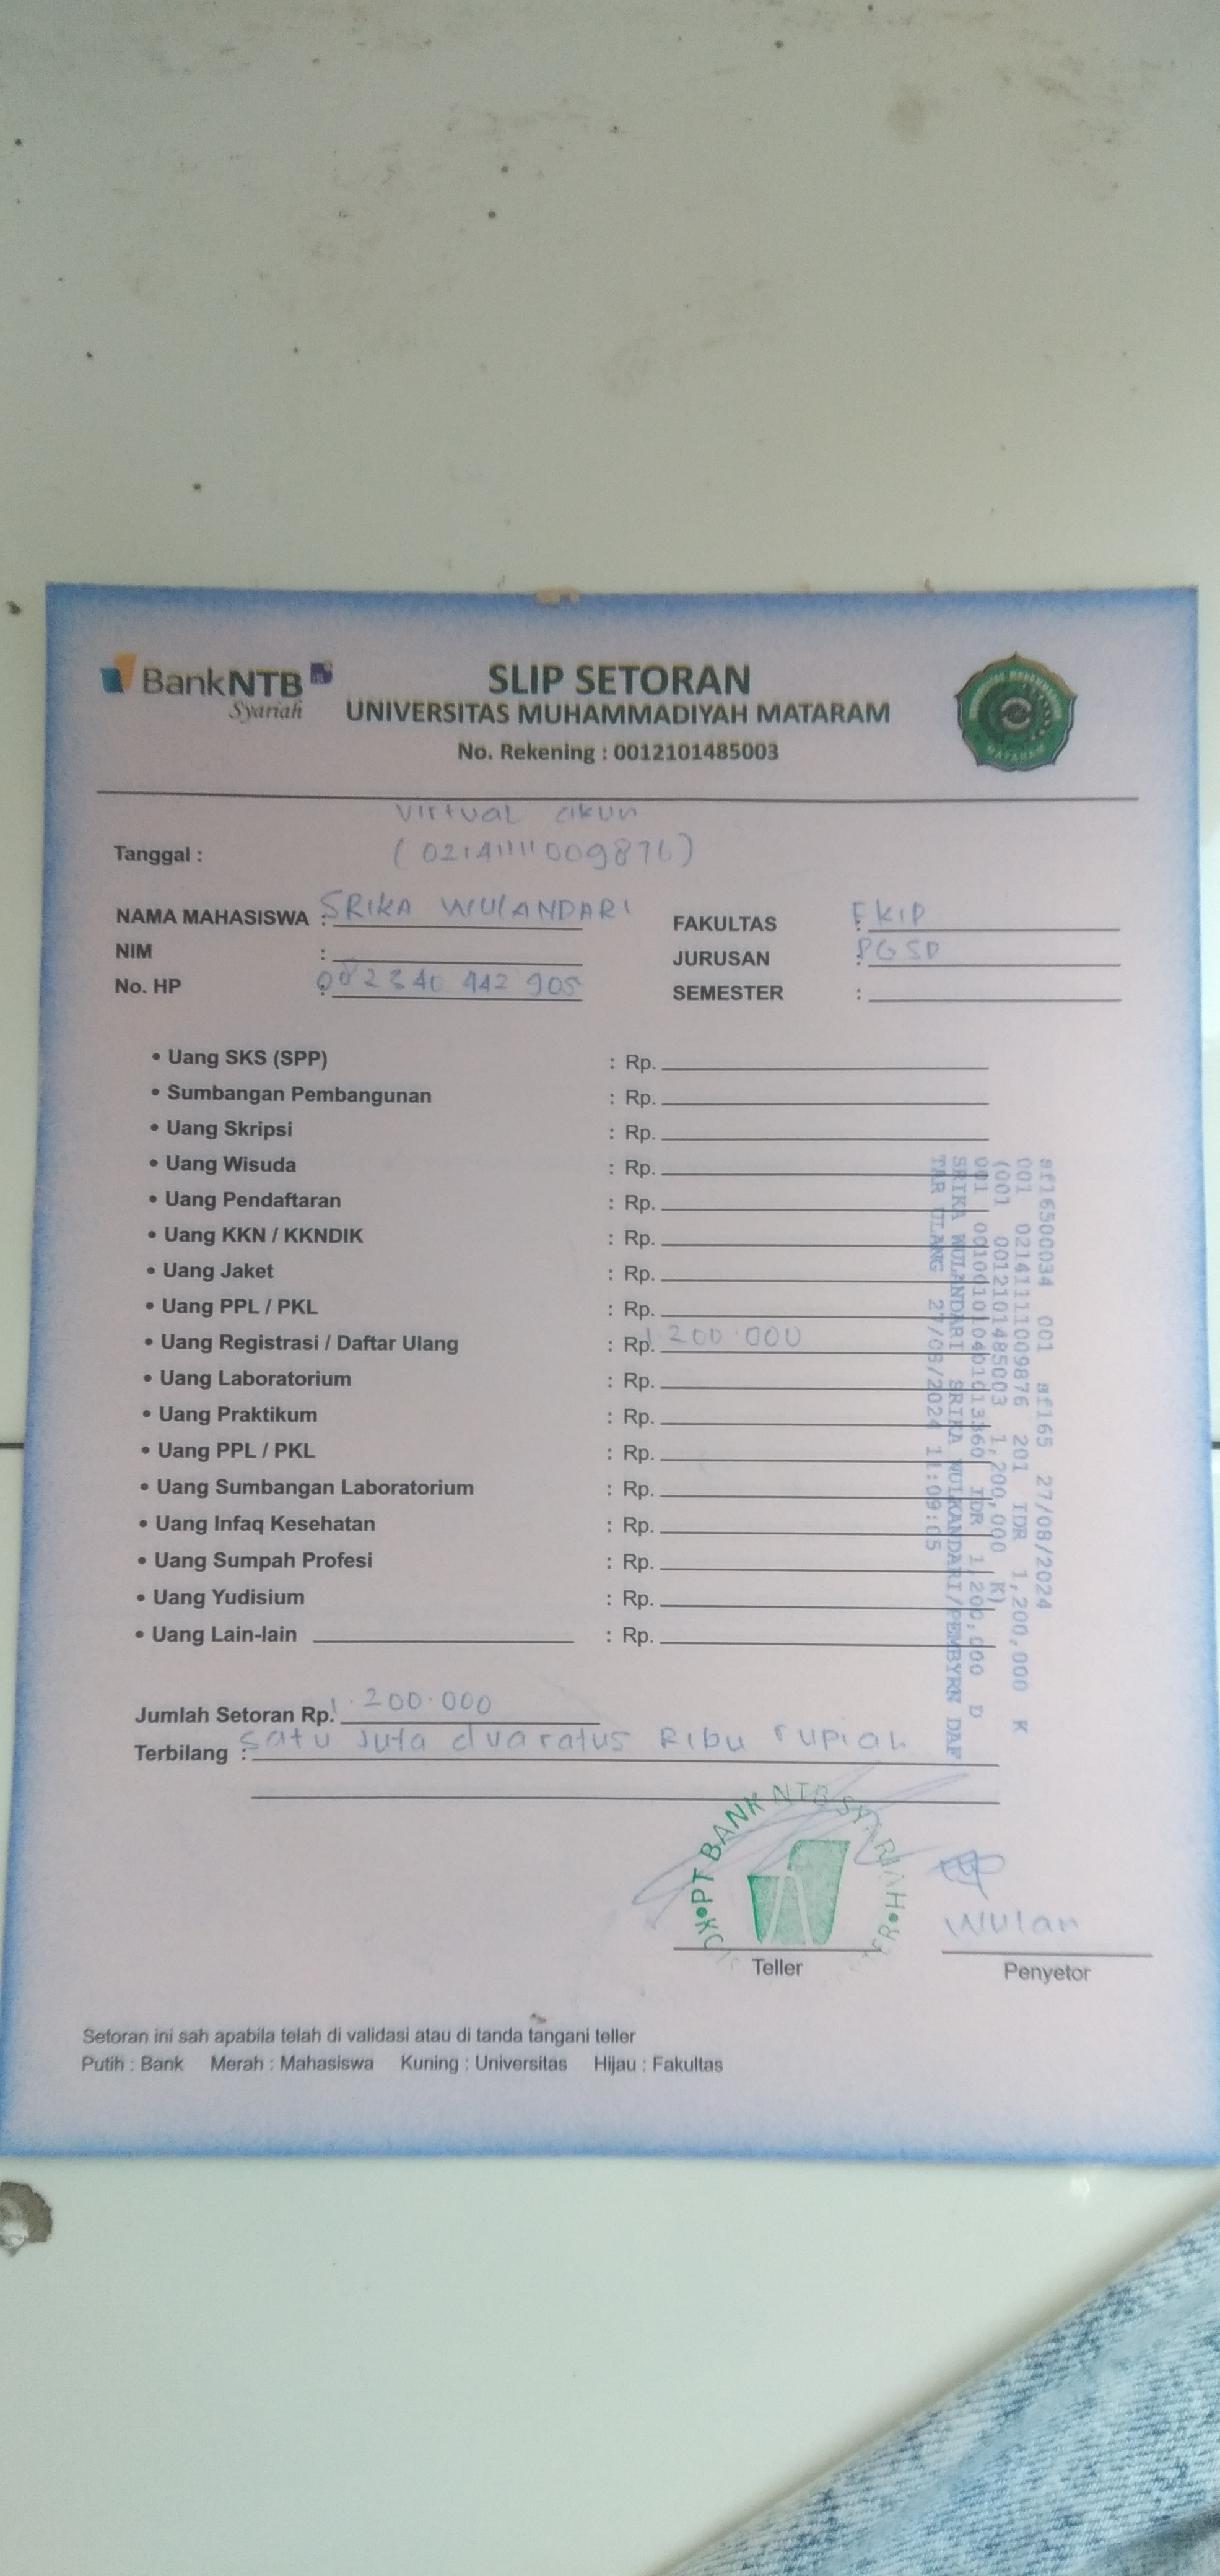 BankNTB
Syariah
SLIP SETORAN
UNIVERSITAS MUHAMMADIYAH MATARAM
No. Rekening : 0012101485003
Virtual akun
Tanggal : (02141111009876)
NAMA MAHASISWA : SRIKA WULANDARI FAKULTAS : FKIP
NIM : JURUSAN : PGSD
No. HP : 082340 442 905 SEMESTER :
• Uang SKS (SPP) : Rp.
• Sumbangan Pembangunan : Rp.
• Uang Skripsi : Rp.
• Uang Wisuda : Rp.
• Uang Pendaftaran : Rp.
• Uang KKN / KKNDIK : Rp.
• Uang Jaket : Rp.
• Uang PPL / PKL : Rp.
• Uang Registrasi / Daftar Ulang : Rp. 1.200.000
• Uang Laboratorium : Rp.
• Uang Praktikum : Rp.
• Uang PPL / PKL : Rp.
• Uang Sumbangan Laboratorium : Rp.
• Uang Infaq Kesehatan : Rp.
• Uang Sumpah Profesi : Rp.
• Uang Yudisium : Rp.
• Uang Lain-lain : Rp.
af16500034 001 af165 27/08/2024
001 02141111009876 201 IDR 1,200,000 K
(001 0012101485003 1,200,000 K)
001 001001010401013360 IDR 1,200,000 D
SRIKA WULANDARI SRIKA WULKANDARI/PEMBYRN DAF
TAR ULANG 27/08/2024 11:09:05
Jumlah Setoran Rp. 1.200.000
Terbilang : Satu Juta dua ratus Ribu rupiah
PT BANK NTB SYARIAH
Wulan
Teller Penyetor
Setoran ini sah apabila telah di validasi atau di tanda tangani teller
Putih : Bank Merah : Mahasiswa Kuning : Universitas Hijau : Fakultas